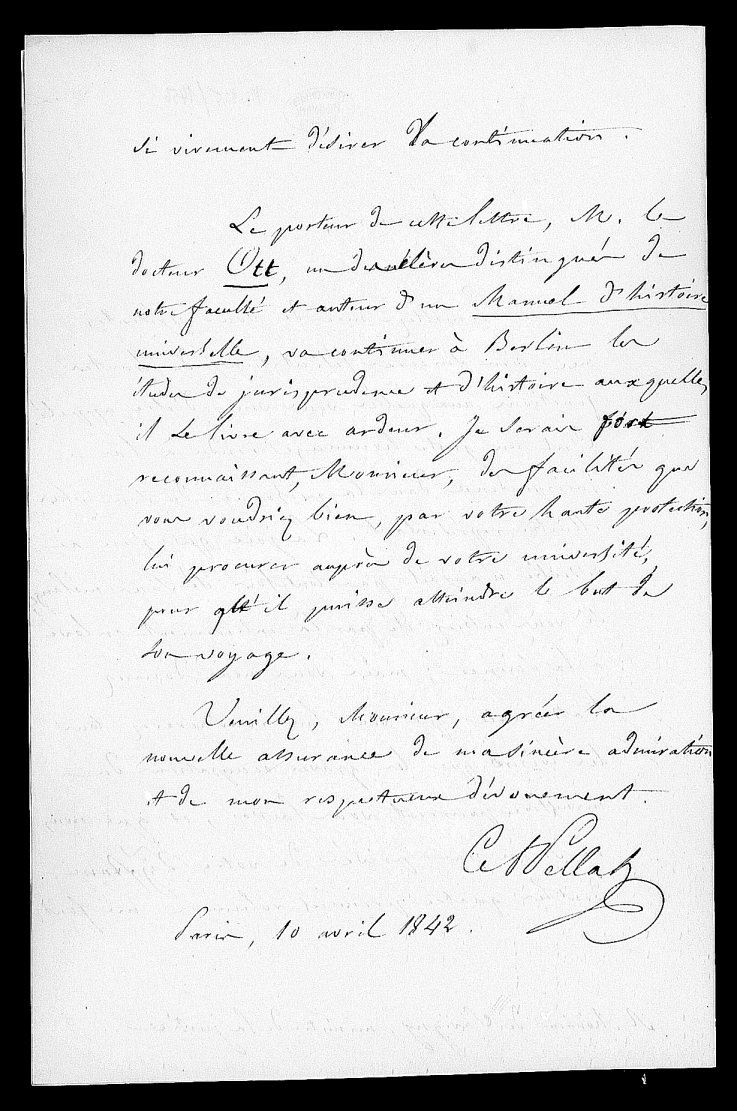 si vivement désirer la continuation.
Le porteur de cette lettre, M. le
docteur Ott, un des élèves distingués de
notre faculté et auteur d'un Manuel d'histoire
universelle, va continuer à Berlin les
études de jurisprudence et d'histoire auxquelles
il se livre avec ardeur. Je serais fort
reconnaissant, Monsieur, des facilités que
vous voudriez bien, par votre haute protection,
lui procurer auprès de votre université,
pour qu'il puisse atteindre le but de
son voyage.
Veuillez, Monsieur, agréer la
nouvelle assurance de ma sincère admiration
et de mon respectueux dévouement.
Pellat
Paris, 10 avril 1842.